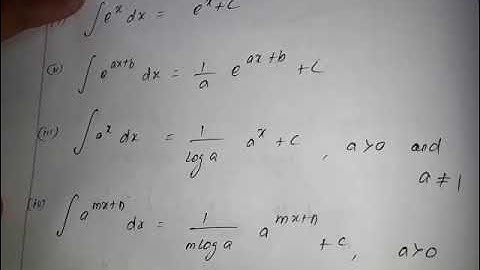 ∫e^x dx = e^x + c
(ii) ∫e^(ax+b) dx = 1/a e^(ax+b) + c
(iii) ∫a^x dx = 1/log a a^x + c , a>0 and a≠1
(iv) ∫a^(mx+n) dx = 1/(m log a) a^(mx+n) + c, a>0